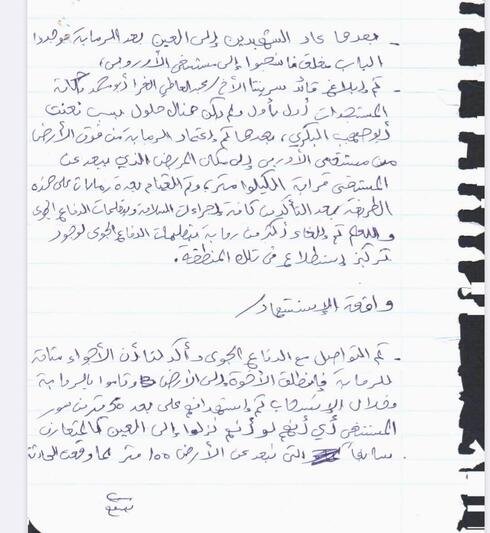 - بعدها عاد الشهيدين إلى العين بعد الرماية فوجدوا
الباب مغلق فانسحبوا إلى مستشفى الأوروبي،
- تم إبلاغ قائد سريتنا الأخ/ عبد العاطي الفرا أبو محمد بكافة
المستجدات أول بأول ولم يكن هناك حلول بسبب تعنت
أبو صهيب البكري، بعدها تم إعتماد الرماية من فوق الأرض
من مستشفى الأوروبي إلى مكان المربض الذي يبعد عن
المستشفى قرابة الكيلوا متر، وتم القيام بعدة رمايات على هذه
الطريقة بعد التأكد من كافة إجراءات السلامة وتعليمات الدفاع الجوي
وللعلم تم إلغاء أكثر من رماية بتعليمات الدفاع الجوي لوجود
تركيز إستطلاع في تلك المنطقة.
واقعة الإستشهاد/
- تم التواصل مع الدفاع الجوي وأكد لنا أن الأجواء متاحة
للرماية فإنطلق الأخوة إلى الأرض وقاموا بالرماية
وخلال الإنسحاب تم إستهدافهم على بعد 50 متر من سور
المستشفى أي أنهم لو أنهم نزلوا إلى العين كالمتعارف
سابقاً التي تبعد عن الأرض 100 متر لما وقعت الحادثة
يتبع